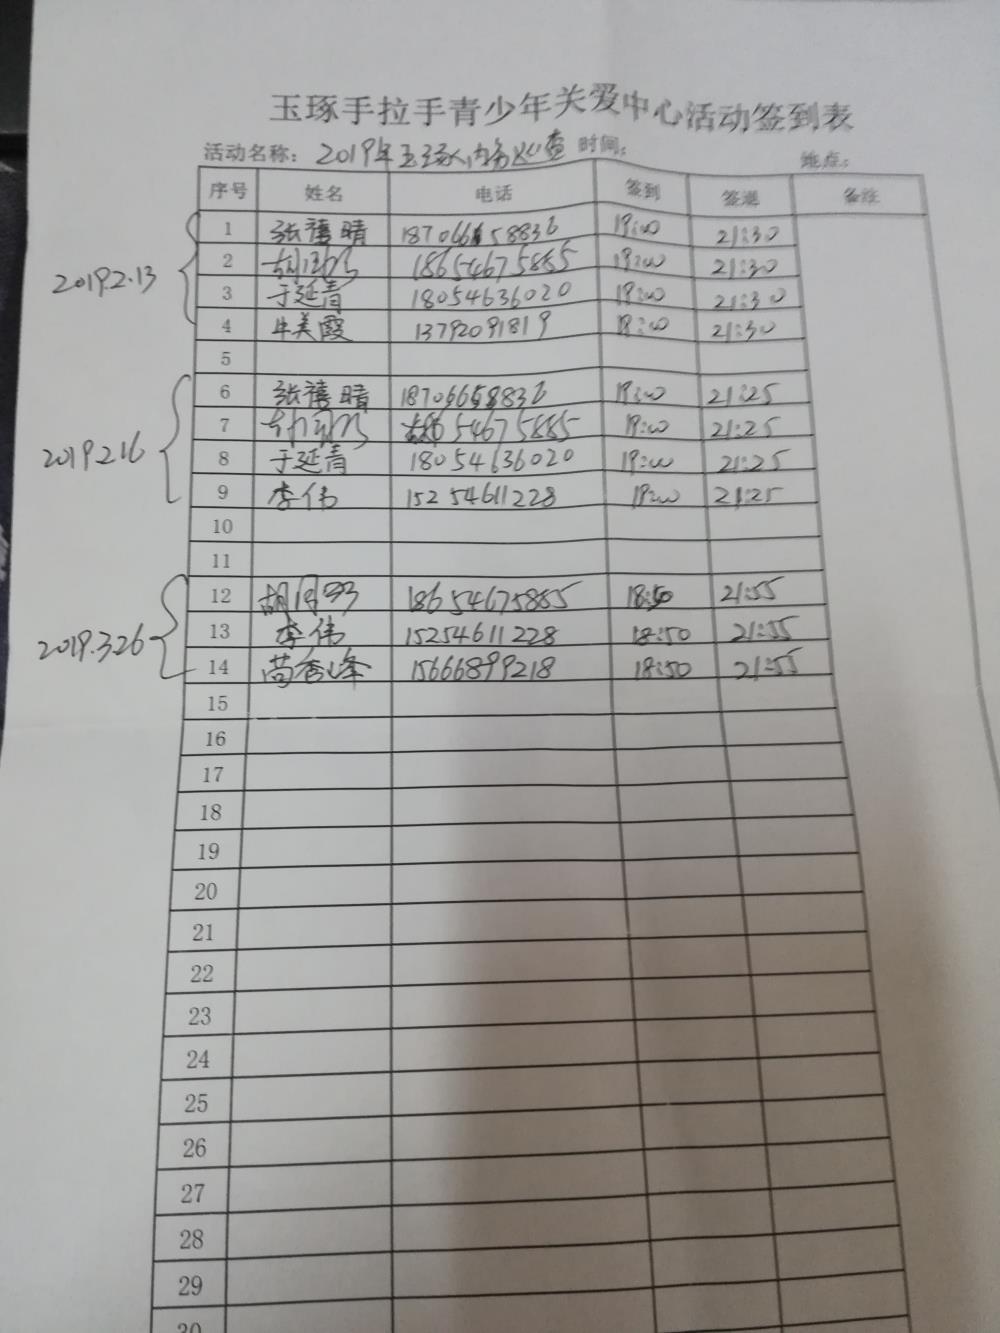 玉琢手拉手青少年关爱中心活动签到表
活动名称：2019年玉琢人内务 查 时间： 地点：
序号 姓名 电话 签到 签退 备注
2019.2.13
1 张禧晴 18706658836 19:00 21:30
2 18654675885 19:00 21:30
3 于延青 18054636020 19:00 21:30
4 牛美霞 13792091819 19:00 21:30
5
2019.2.16
6 张禧晴 18706658836 19:00 21:25
7 18654675885 19:00 21:25
8 于延青 18054636020 19:00 21:25
9 李伟 15254611228 19:00 21:25
10
11
2019.3.26
12 胡月 18654675885 18:50 21:55
13 李伟 15254611228 18:50 21:55
14 苘秀峰 15666899218 18:50 21:55
15
16
17
18
19
20
21
22
23
24
25
26
27
28
29
30